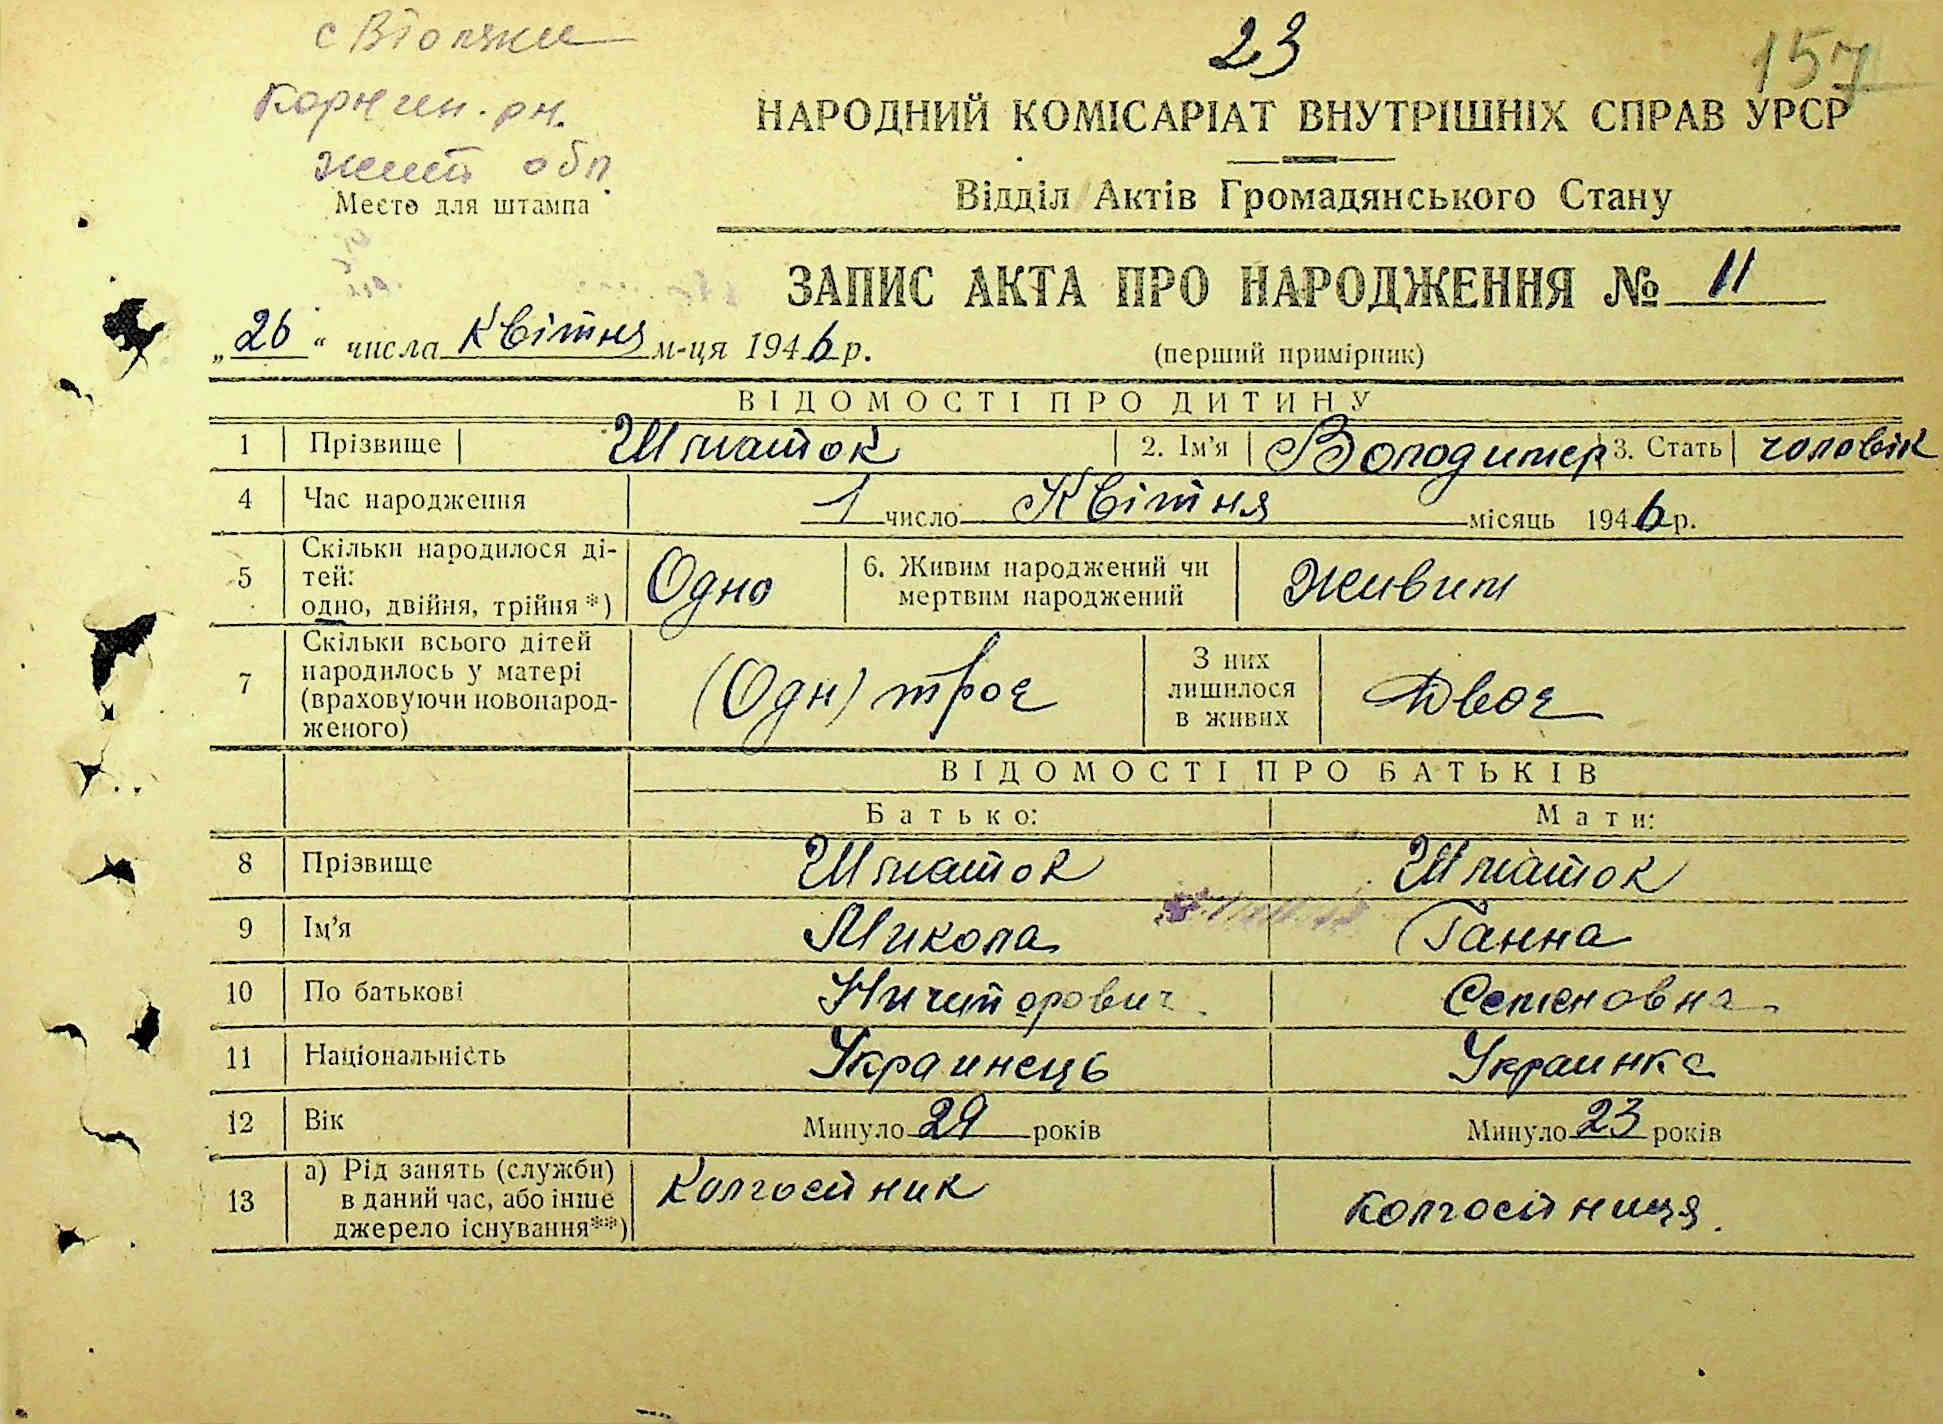 23
157
с Віоляки
Корнин. рн.
Жит обл.
Место для штампа
НАРОДНИЙ КОМІСАРІАТ ВНУТРІШНІХ СПРАВ УРСР
Відділ Актів Громадянського Стану
ЗАПИС АКТА ПРО НАРОДЖЕННЯ № 11
„26“ числа Квітня м-ця 1946 р.
(перший примірник)
ВІДОМОСТІ ПРО ДИТИНУ
1 Прізвище Шматок 2. Ім'я Володимер 3. Стать чоловік
4 Час народження 1 число Квітня місяць 1946 р.
5 Скільки народилося ді-
тей:
одно, двійня, трійня *)
Одно
6. Живим народжений чи
мертвим народжений
живим
7 Скільки всього дітей
народилось у матері
(враховуючи новонарод-
женого)
(Одн) троє
З них
лишилося
в живих
Двоє
ВІДОМОСТІ ПРО БАТЬКІВ
Батько: Мати:
8 Прізвище Шматок Шматок
9 Ім'я Микола Ганна
10 По батькові Ничипорович Семеновна
11 Національність Украинець Украинка
12 Вік Минуло 29 років Минуло 23 років
13 а) Рід занять (служби)
в даний час, або інше
джерело існування**)
Колгоспник колгоспниця.